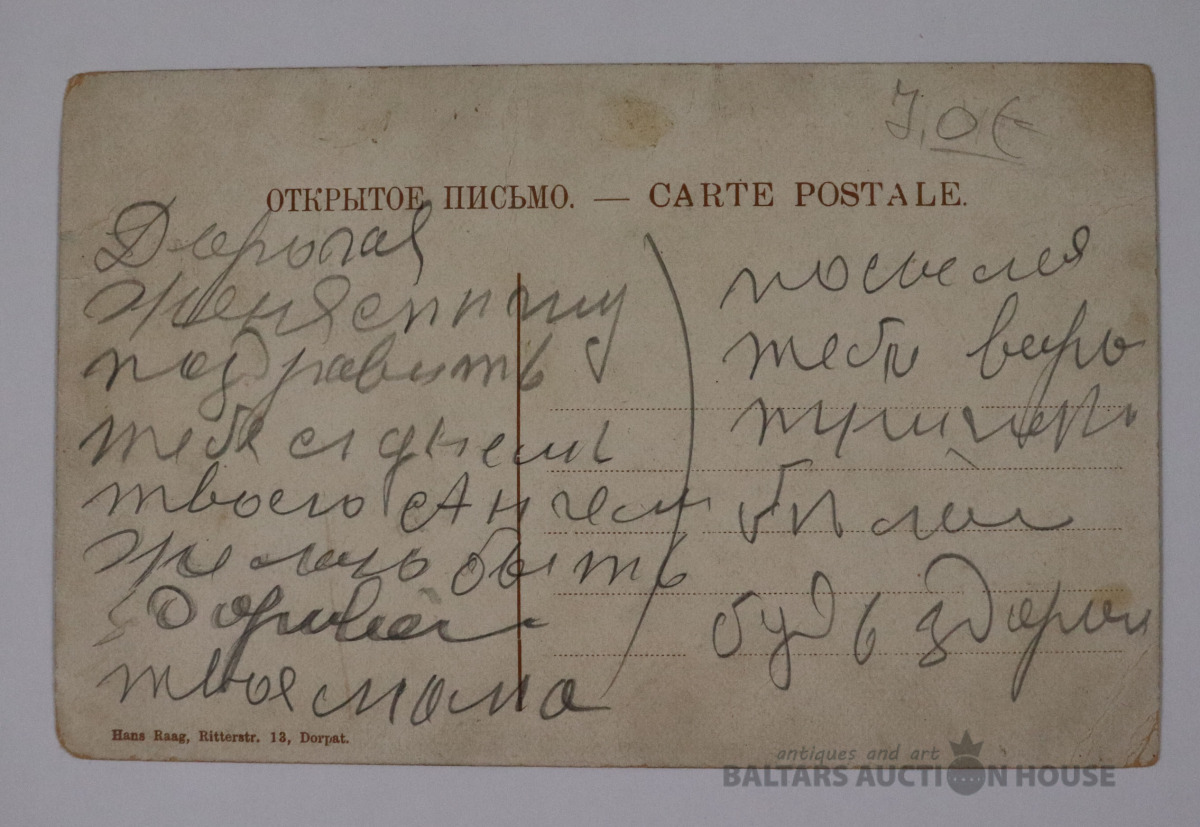 7.0€
ОТКРЫТОЕ ПИСЬМО. — CARTE POSTALE.
Дорогая
Женя спишу
поздравить
тебя с днем
твоего Ангела
Желаю быть
здоровой
твоя мама
посылея
тебе
будь здоров
Hans Raag, Ritterstr. 13, Dorpat.
antiques and art
BALTARS AUCTION HOUSE